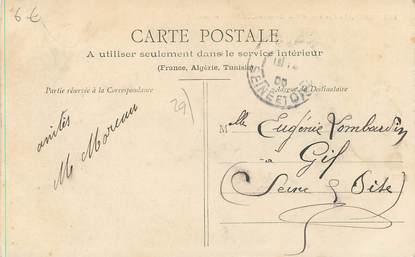 6 €
CARTE POSTALE
A utiliser seulement dans le service intérieur
(France, Algérie, Tunisie)
Partie réservée à la Correspondance
Adresse du Destinataire
29)
SEINE ET OISE
amitiés
M Moreau
Mlle Eugénie Lombardin
à
Gif
(Seine & Oise)